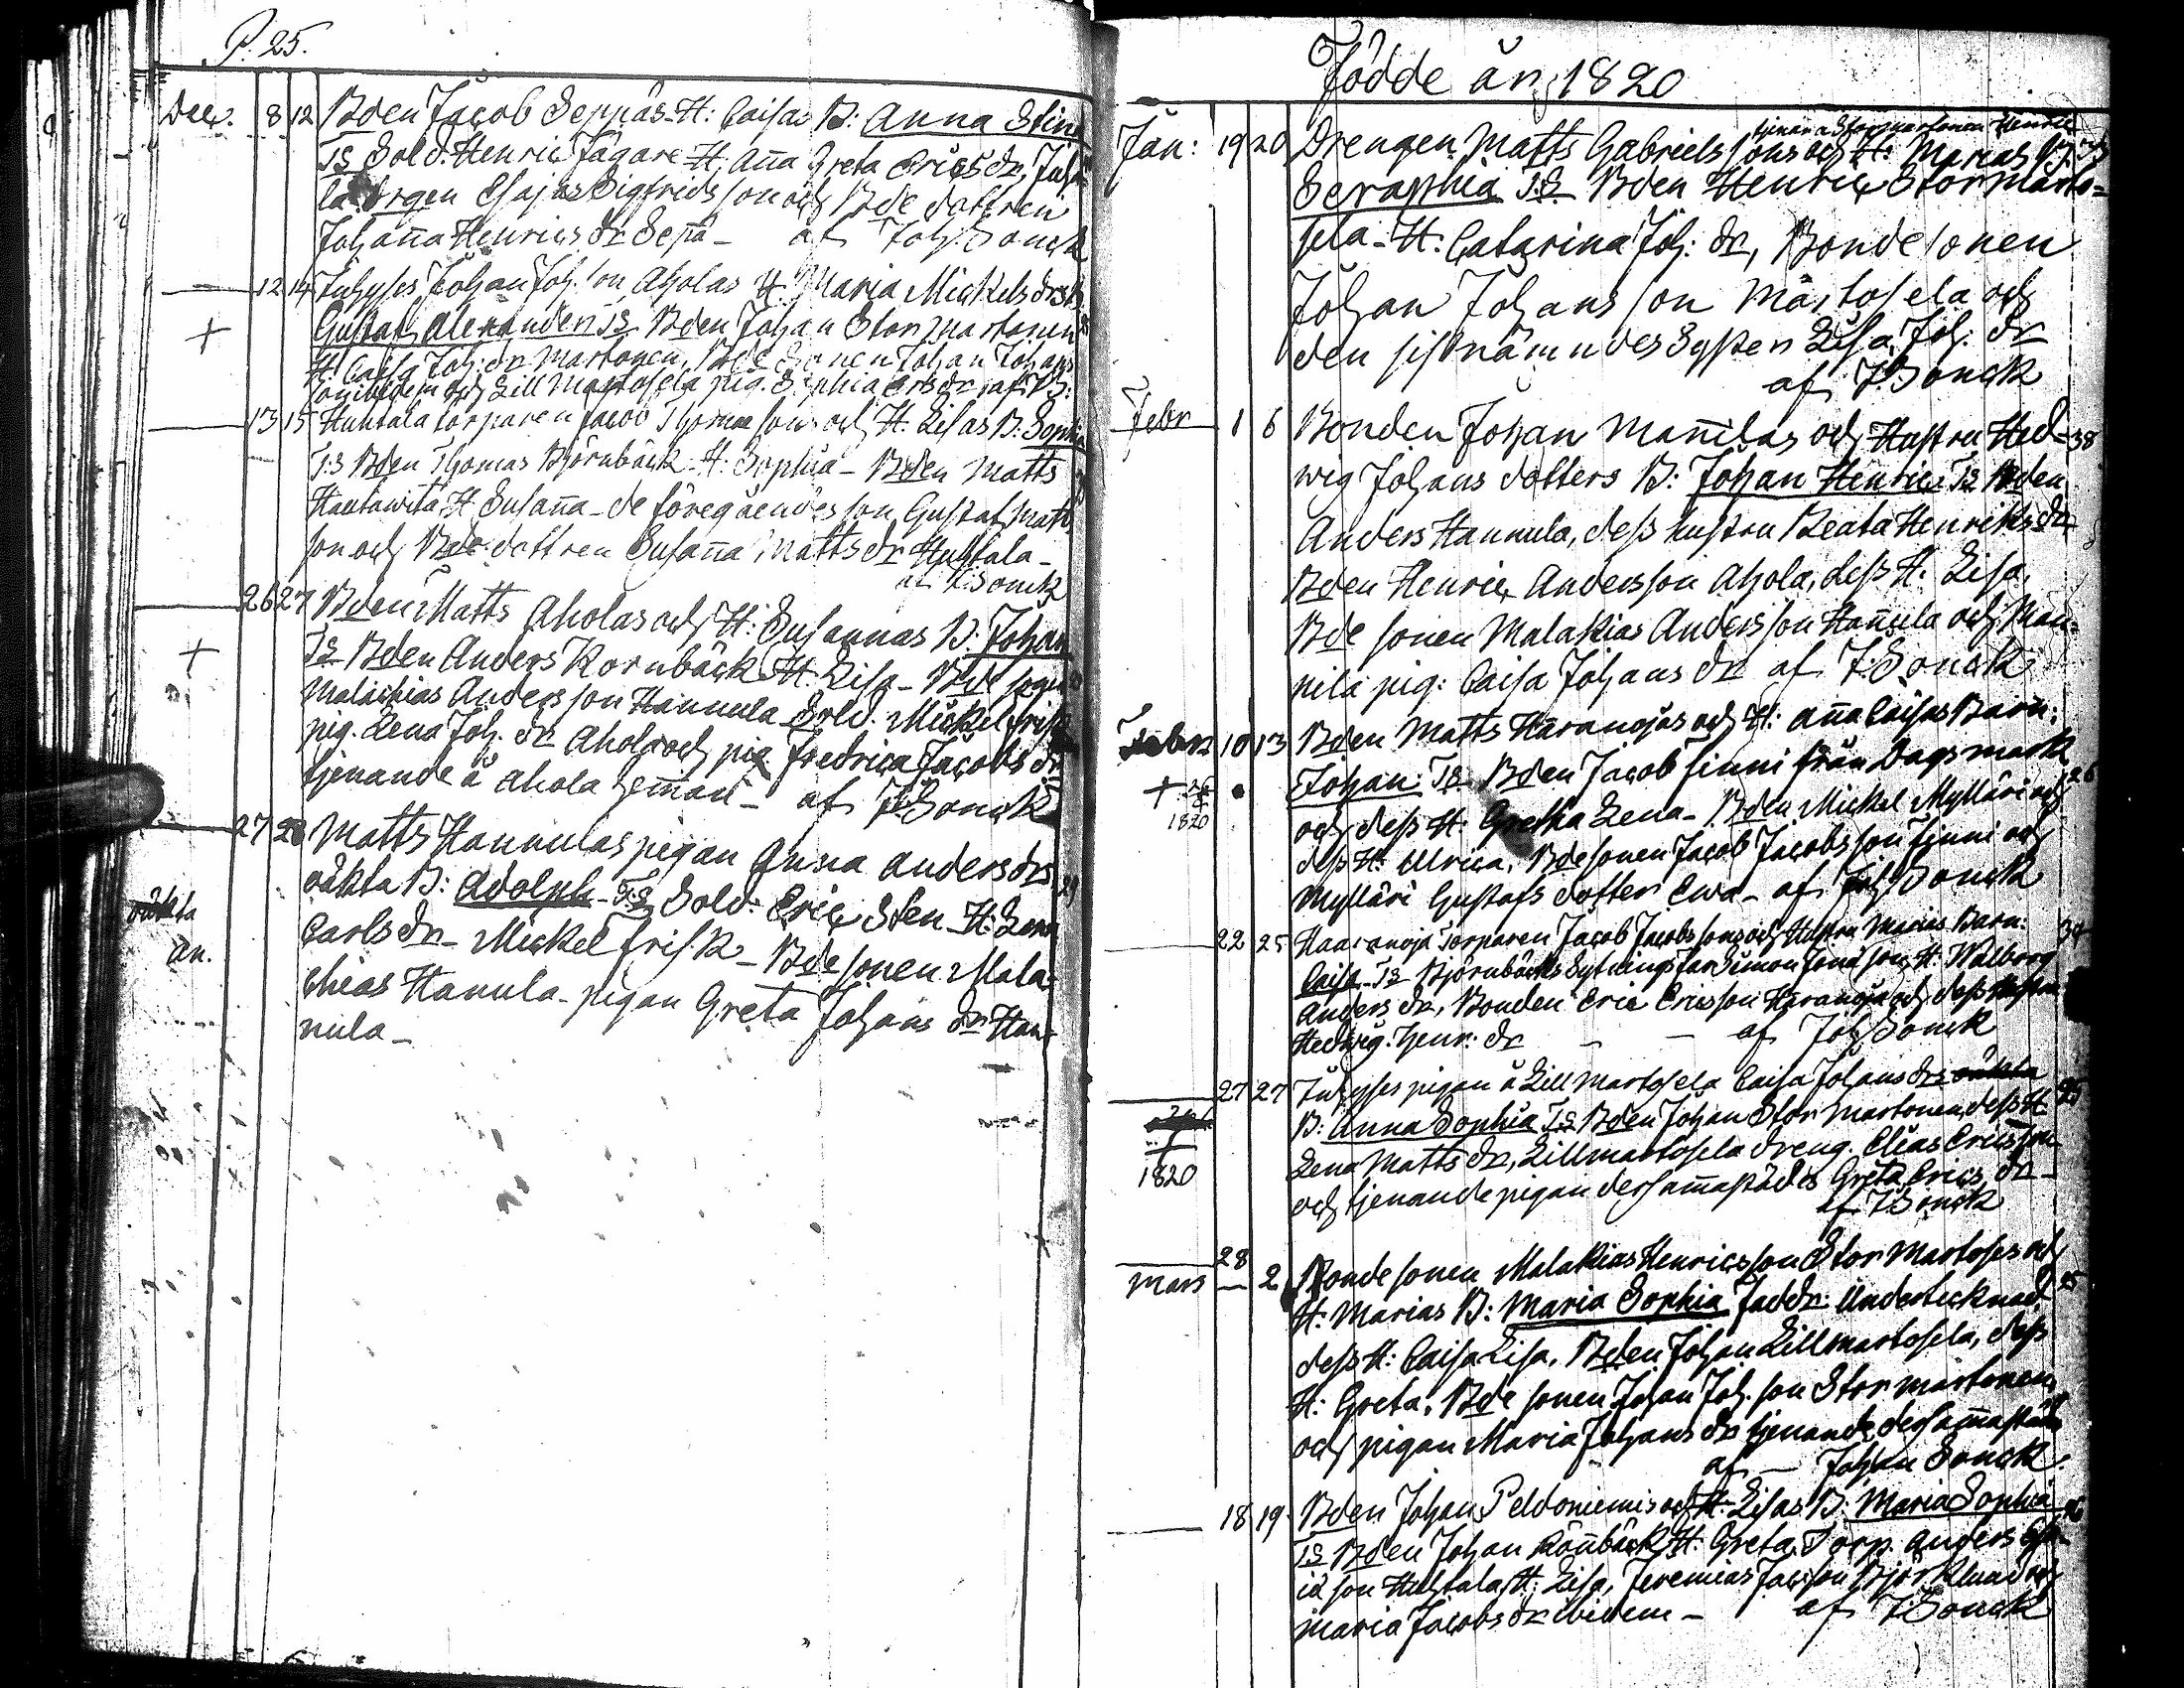 P. 25.
Dec. 8 12 Bden Jacob Seppäs H: Caisas B: Anna Stina
TS Sold. Henric Jägare H. Aña Greta Erics dr,
drgen Esajas Sigfrids son och Bde dottren
Johaña Henrics dr Sepä - af Joh. Sonck
12 14 Inhyses Johan Joh. son Aholas H. Maria Mickels drs B
Gustaf Alexander TS Bden Johan Stor Martonen
+
H. Caisa Joh: dr Martonen, Bde Sonen Johan Johans
son ibidem och Lill Martosela pig. Sophia Ers dr af
13 15 Huhtala torparen Jacob Thomae sons och H. Lisas B: Sophia
TS Bden Thomas Björnbäck H: Sophia - Bden Matts
Hautawita H Susaña - de föregåendes son Gustaf Matts
son och Bde dottren Susaña Matts dr Huhtala -
af J. Sonck
26 27 Bden Matts Aholas och H: Susannas B: Johan
+
TS Bden Anders Kornbäck H. Lisa - Bde sonen
Malachias Anders son Hannula Sold. Mickel frisk
pig. Lena Joh. dr Ahola och pig fredrica Jacobs dr
tjenande å Ahola hemman - af J Sonck
27 28 Matts Hannulas pigan Anna Anders drs
oäkta B: Adolph - TS Sold: Eric Sten H: Lena 29
oäkta
Carls dr - Mickel frisk - Bde sonen Mala-
an.
chias Hanula - pigan Greta Johans dr Han-
nula -
Födde år 1820
tjenar a Stormartonen Henric
Jan: 19 20 Drengen Matts Gabriels sons och H: Marias B:
Seraphia TS Bden Henric Stormarto-
sela - H: Catarina Joh: dr, Bondesonen
Johan Johans son Martosela och
den sistnämndes Syster Lisa Joh. dr
af J Sonck
Febr 1 6 Bonden Johan Mañilas och Hustru Hed- 38
wig Johans dotters B: Johan Henric TS Bden
Anders Hannula, dess hustru Beata Henriks dr
Bden Henric Andersson Ahola, dess H: Lisa,
Bde sonen Malakias Anders son Hañula och Mañ-
nila pig: Caisa Johans dr af J. Sonck
Febr 10 13 Bden Matts Haranojas och H: Aña Caisas Barn:
Johan: TS Bden Jacob finni från Dagsmark 26
+ 1820
och dess H: Gretha Lena - Bden Mickel Mylläri och
dess H: Ulrica, Bde sonen Jacob Jacobs son finni och
Mylläri Gustafs dotter Ewa - af Joh Sonck
22 25 Haaranoja Torparen Jacob Jacobs sons och Hustru Marias Barn: 34
Caisa - TS Björnbäcks Sytningsfar Simon Jonae son, H: Walborg
Anders dr, Bonden Eric Ericsson Haranoja och dess Hustru
Hedwig Henr: dr - - af Joh Sonck
27 27 Inhyses pigan å Lill martosela Caisa Johans drs oäkta 25
B: Anna Sophia TS Bden Johan Stor Martonen, dess H.
Lena Matts dr, Lillmartosela dreng Elias Ericsson
1820
och tjenande pigan dersammastädes Greta Erics dr -
af J Sonck
28
Mars - 2 Bonde sonen Malakias Henrics son Stor Martoses och
H: Marias B: Maria Sophia Faddr: Undertecknad 25
dess H: Caisa Lisa, Bden Johan Lillmartosela, dess
H: Greta. Bde sonen Johan Joh. son Stor Martonen
och pigan Maria Johans dr tjenande dersammastäd
af - Johan Sonck.
18 19 Bden Johan Peldoniemis och H: Lisas B: Maria Sophia
TS Bden Johan Rönnbäck H: Greta, Torp. Anders
son Huhtala H: Lisa, Jeremias Jac. son Björklund och
Maria Jacobs dr ibidem - af J Sonck